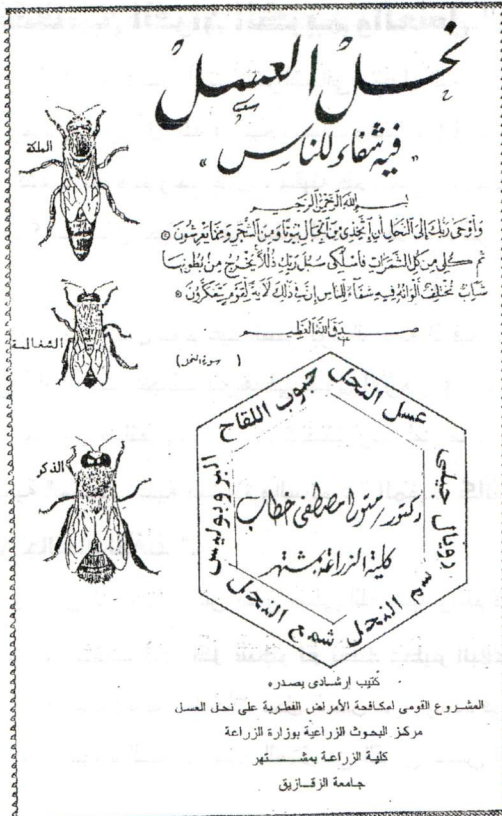 نحل العسل
"فيه شفاء للناس"
بسم الله الرحمن الرحيم
وأوحى ربك إلى النحل أن اتخذي من الجبال بيوتا ومن الشجر ومما يعرشون
ثم كلي من كل الثمرات فاسلكي سبل ربك ذللا يخرج من بطونها
شراب مختلف ألوانه فيه شفاء للناس إن في ذلك لآية لقوم يتفكرون
صدق الله العظيم
(سورة النحل)
الملكة
الشغالة
الذكر
عسل النحل
حبوب اللقاح
البروبوليس
رويال جيلى
سم النحل
شمع النحل
دكتور متولى مصطفى خطاب
كلية الزراعة بمشتهر
كتيب إرشادى يصدره
المشروع القومى لمكافحة الأمراض الفطرية على نحل العسل
مركز البحوث الزراعية بوزارة الزراعة
كلية الزراعة بمشتهر
جامعة الزقازيق